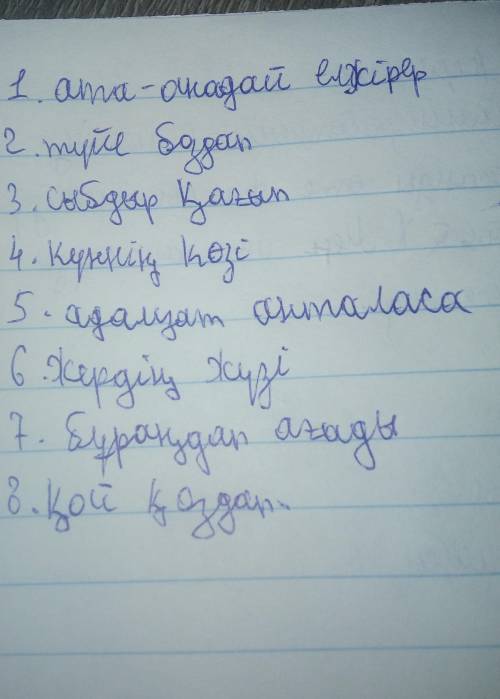 1. ата-анадай елжірер
2. түйе боздап
3. сыбдыр қағып
4. күннің көзі
5. адамзат анталаса
6. Жердің жүзі
7. бұраңдап ағады
8. қой қоздап.